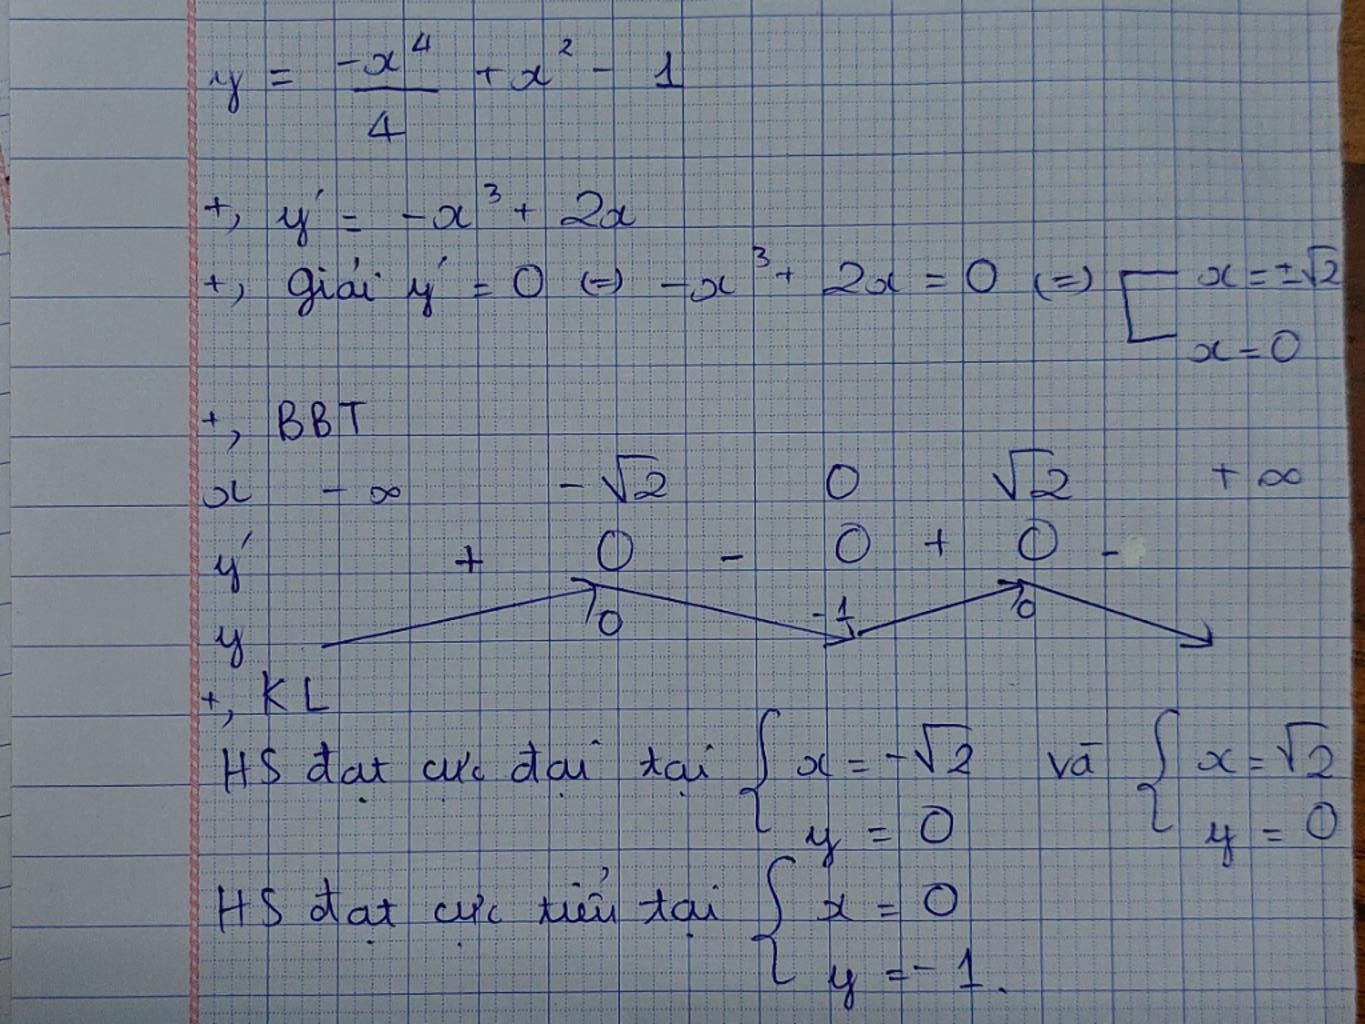 y = -x⁴/4 + x² - 1
+, y' = -x³ + 2x
+, Giải y' = 0 (=) -x³ + 2x = 0 (=) [ x = ±√2
x = 0
+, BBT
x -∞ -√2 0 √2 +∞
y' + 0 - 0 + 0 -
y 0 -1 0
+, KL
HS đạt cực đại tại { x = -√2 và { x = √2
y = 0 y = 0
HS đạt cực tiểu tại { x = 0
y = -1.